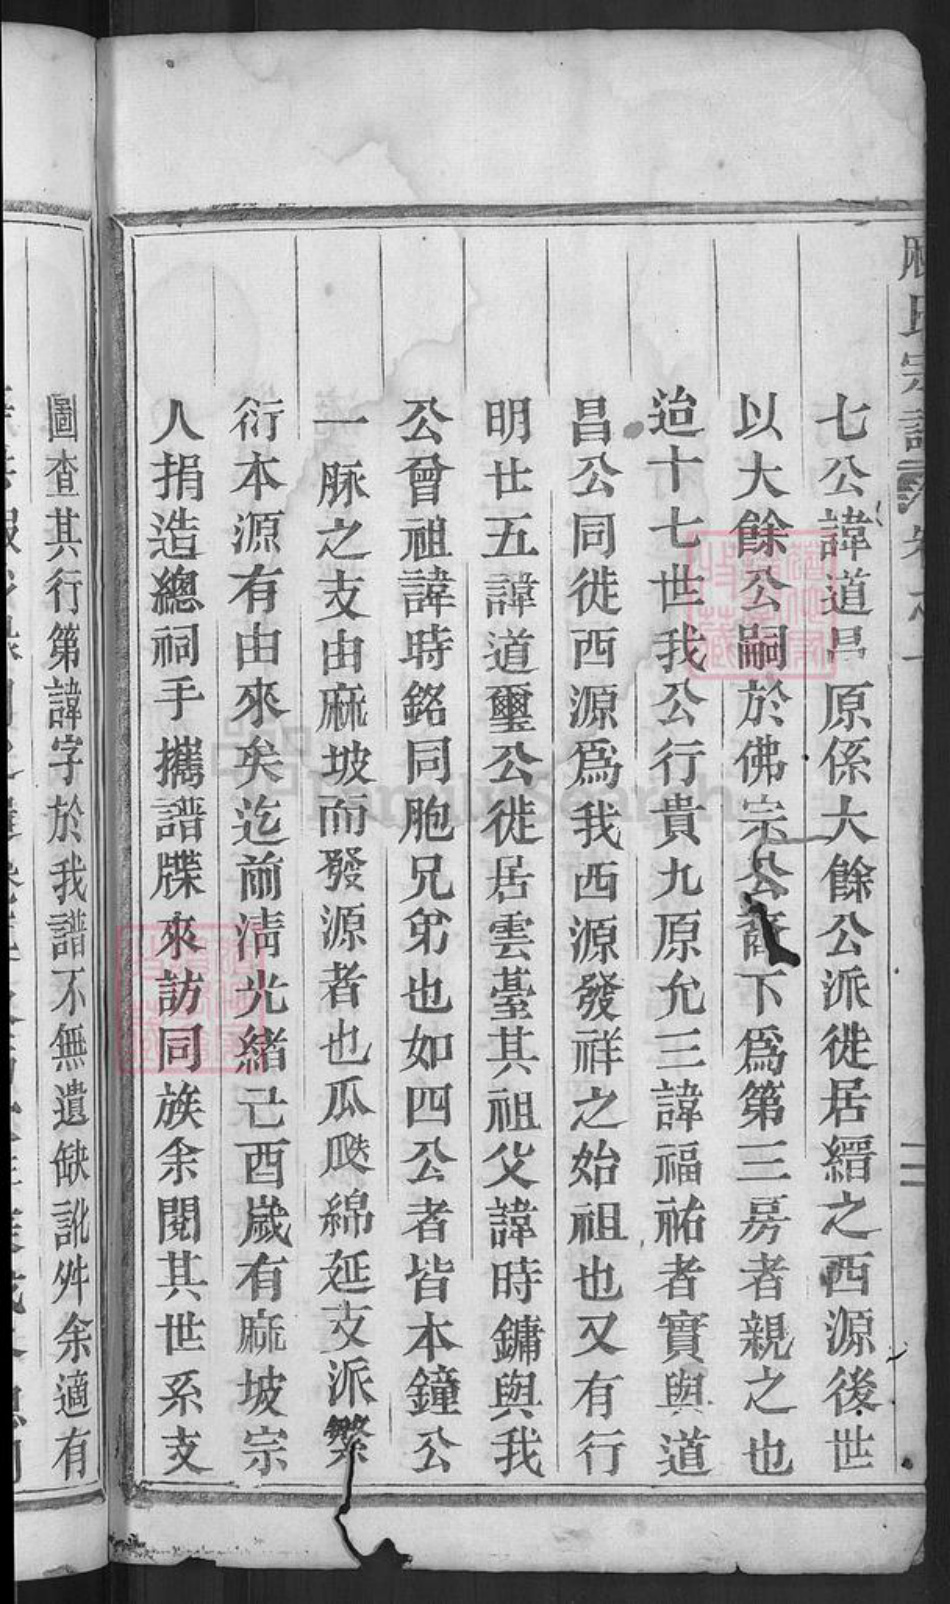 麻氏宗譜
七公諱道昌原係大餘公派徙居縉之西源後世
以大餘公嗣於佛宗公裔下爲第三房者親之也
迨十七世我公行貴九原允三諱福祐者實與道
昌公同徙西源爲我西源發祥之始祖也又有行
明廿五諱道璽公徙居雲臺其祖父諱時鏞與我
公曾祖諱時銘同胞兄弟也如四公者皆本鐘公
一脉之支由麻坡而發源者也瓜瓞綿延支派繁
衍本源有由來矣迄前淸光緒己酉嵗有麻坡宗
人捐造總祠手攜譜牒來訪同族余閱其世系支
圖查其行第諱字於我譜不無遺缺訛舛余適有